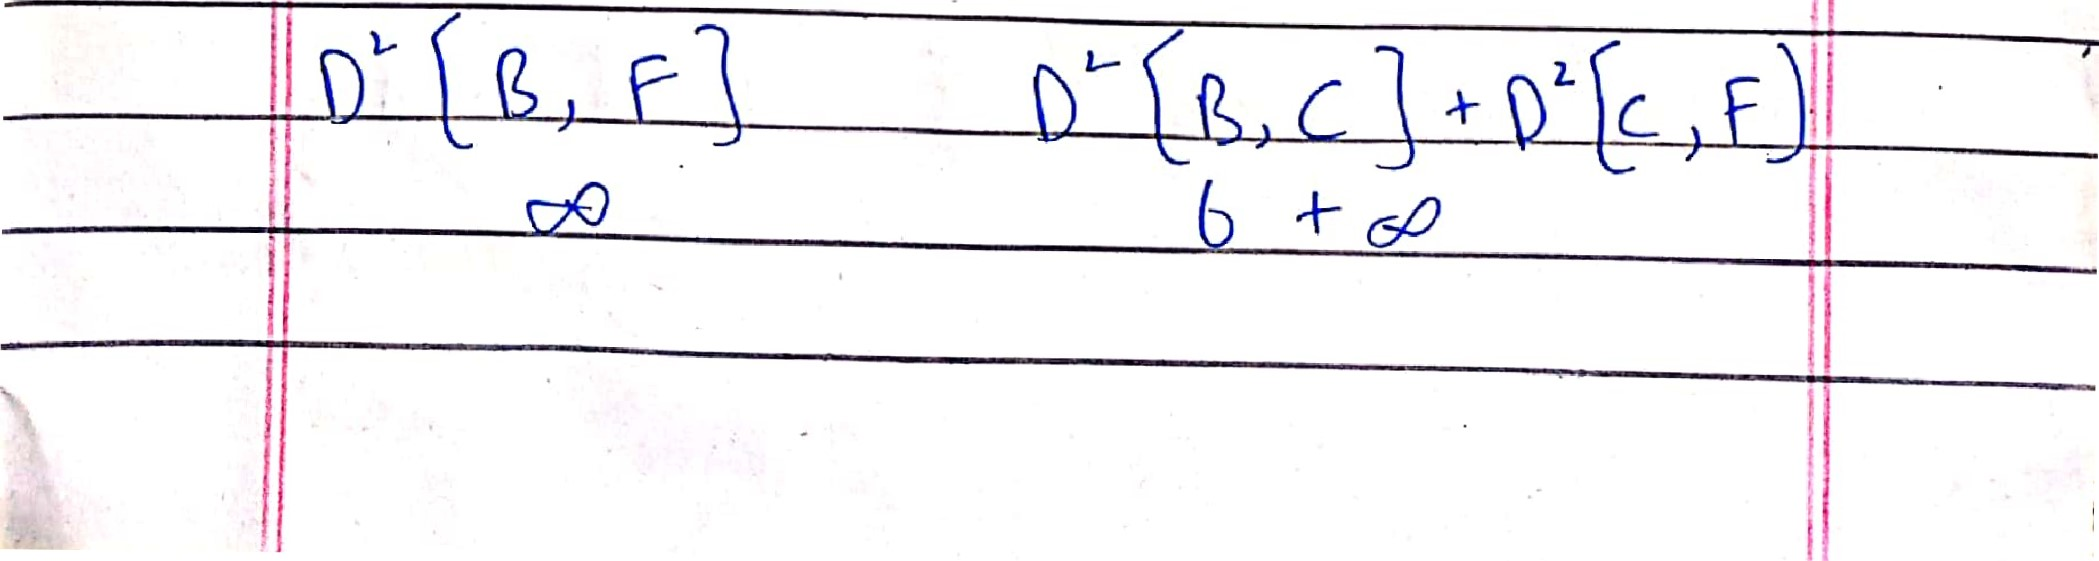 D² [B, F] D² [B, C] + D² [C, F]
∞ 6 + ∞